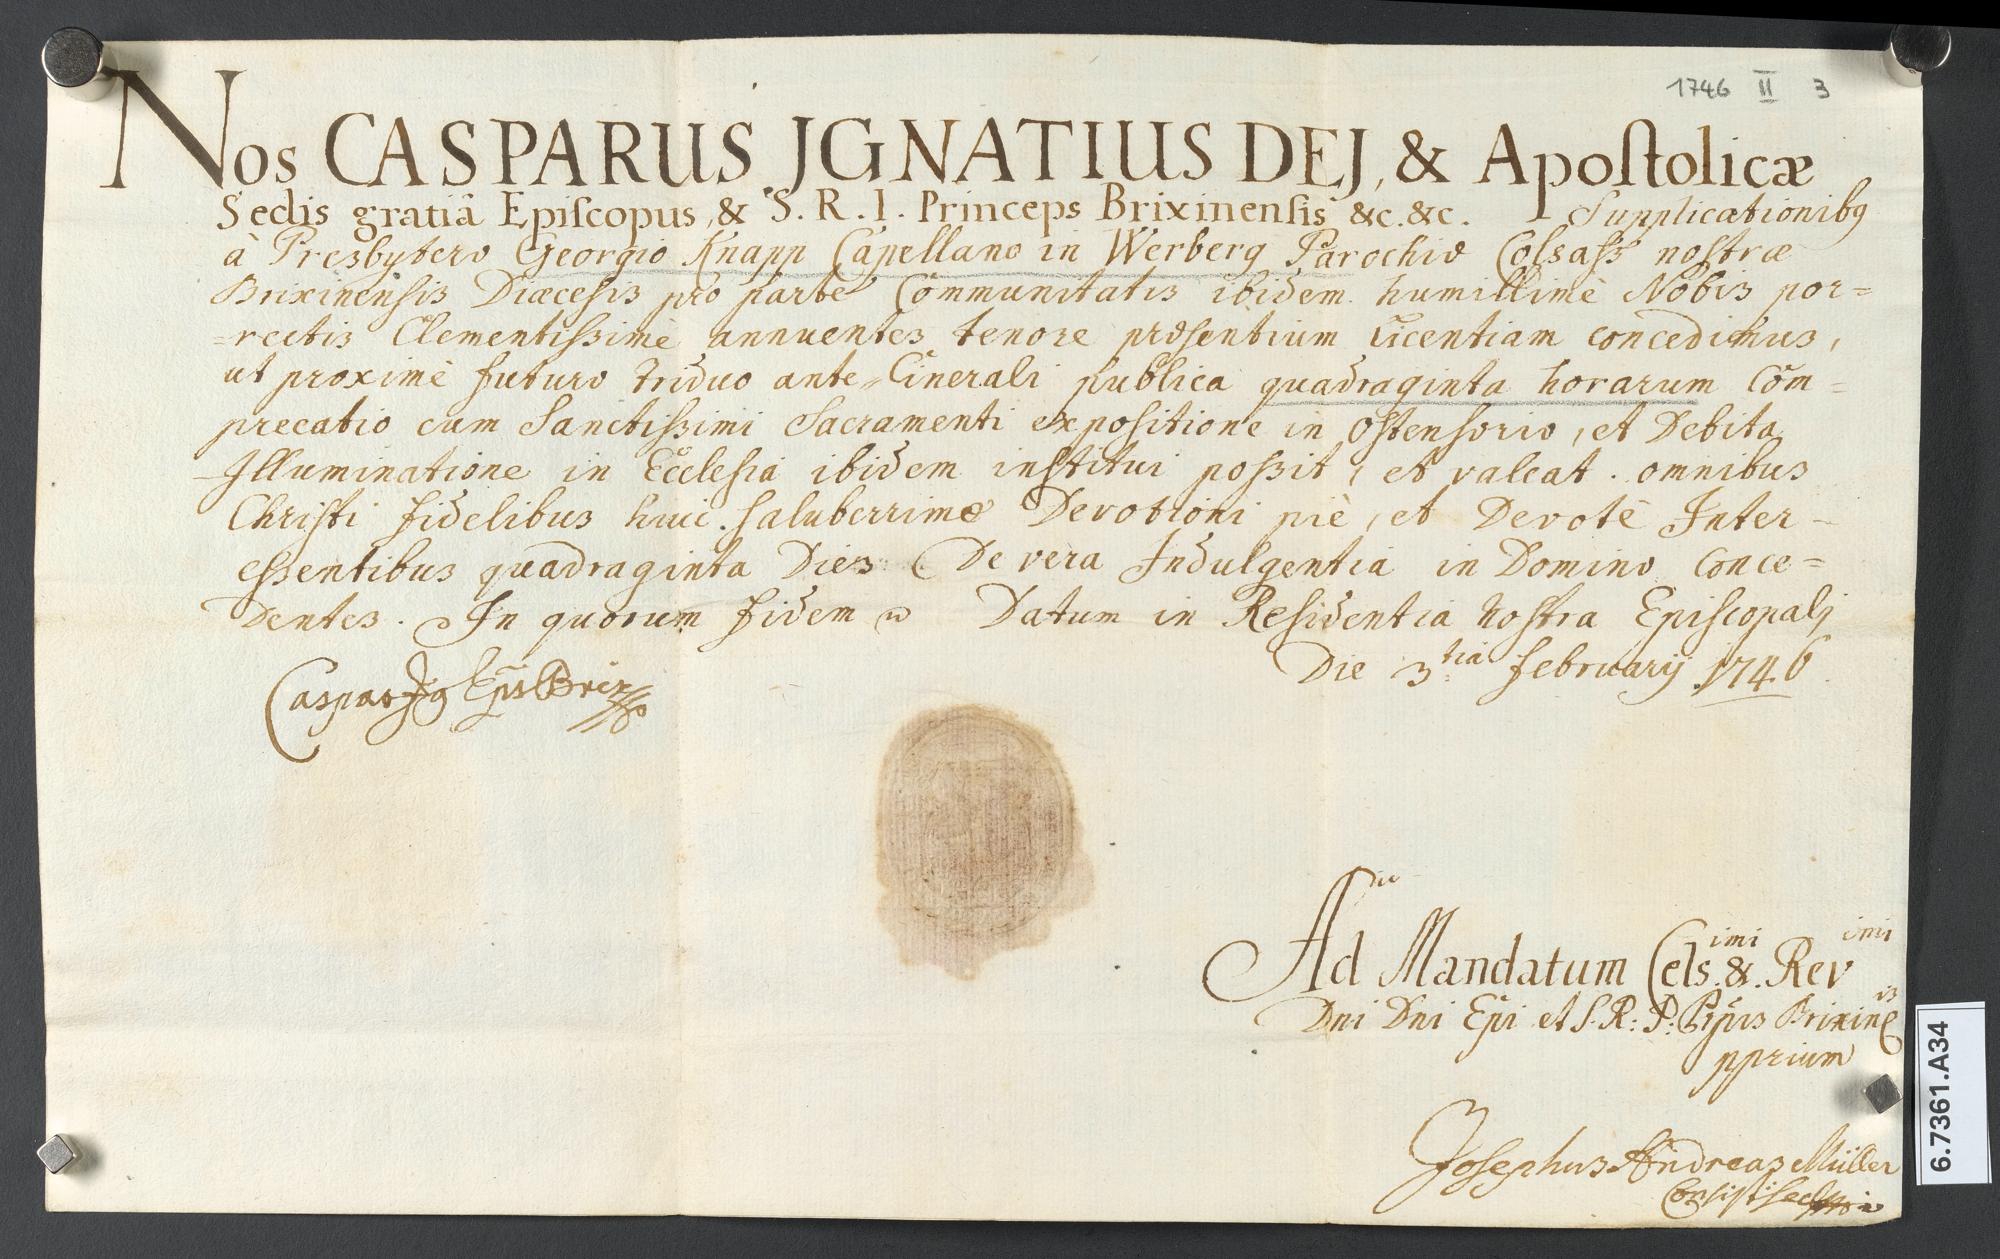 1746 II 3
Nos CASPARUS JGNATIUS DEJ, & Apoſtolicæ
Sedis gratiâ Epiſcopus, & S. R. I. Princeps Brixinenſis &c. &c. Supplicationibꝰ
à Presbytero Georgio Knapp Capellano in Werberg Parochiæ Colsaſs noſtræ
Brixinenſis Diæceſis pro parte Communitatis ibidem humillimè Nobis por=
=rectis Clementiſsimè annuentes tenore præſentium licentiam concedimus,
ut proximè futuro triduo ante=Cinerali publica quadraginta horarum Com=
precatio cum Sanctiſsimi Sacramenti expoſitione in Oſtenſorio, et Debita
Illuminatione in Eccleſia ibidem inſtitui poſsit, et valeat. omnibus
Chriſti fidelibus huic ſaluberrimæ Devotioni piè, et Devotè Inter-
eſsentibus quadraginta Dies De vera Indulgentia in Domino Conce=
Dentes. In quorum fidem Datum in Reſidentia Noſtra Epiſcopalj
Die 3.tia februarij 1746.
Caspar Ig Eps Brix
Ad Mandatum Cels.imi &. Rev imi
Dni Dni Epi et S. R: P: Pīpis Brixinēis
pprium
Joſephus Andreas Müller
Conſiſt
6.7361.A34